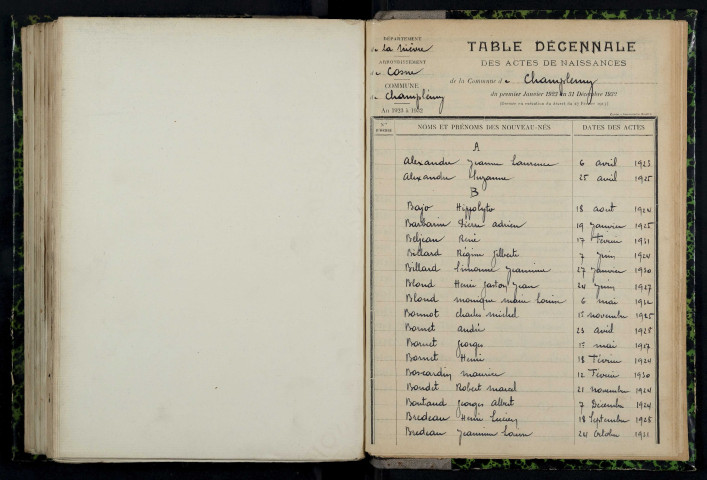 DÉPARTEMENT
de la Nièvre
ARRONDISSEMENT
de Cosne
COMMUNE
de Champlemy
An 1923 à 1932
TABLE DÉCENNALE
DES ACTES DE NAISSANCES
de la Commune de Champlemy
du premier Janvier 1923 au 31 Décembre 1932
NOMS ET PRÉNOMS DES NOUVEAU-NÉS DATES DES ACTES
A
Alexandre Jeanne Laurence 6 avril 1923
Alexandre Suzanne 25 avril 1925
B
Bajo Hippolyte 18 aout 1924
Barbarin Pierre adrien 19 Janvier 1925
Beljean René 17 Février 1931
Billard Régine Gilberte 7 Juin 1924
Billard Simonne Jeannine 27 Janvier 1930
Blond Henri Gaston Jean 24 Juin 1927
Blond monique marie Louise 6 mai 1932
Bonnot charles michel 15 novembre 1925
Bornet andré 23 avril 1925
Bornet Georges mai 1927
Bornet Henri 18 Février 1924
Boscardin maurice 12 Février 1930
Boudet Robert marcel 21 novembre 1924
Boutaud Georges albert 7 Décembre 1924
Bredeau Henri Lucien 18 Septembre 1925
Bredeau Jeannine Louise 24 Octobre 1931